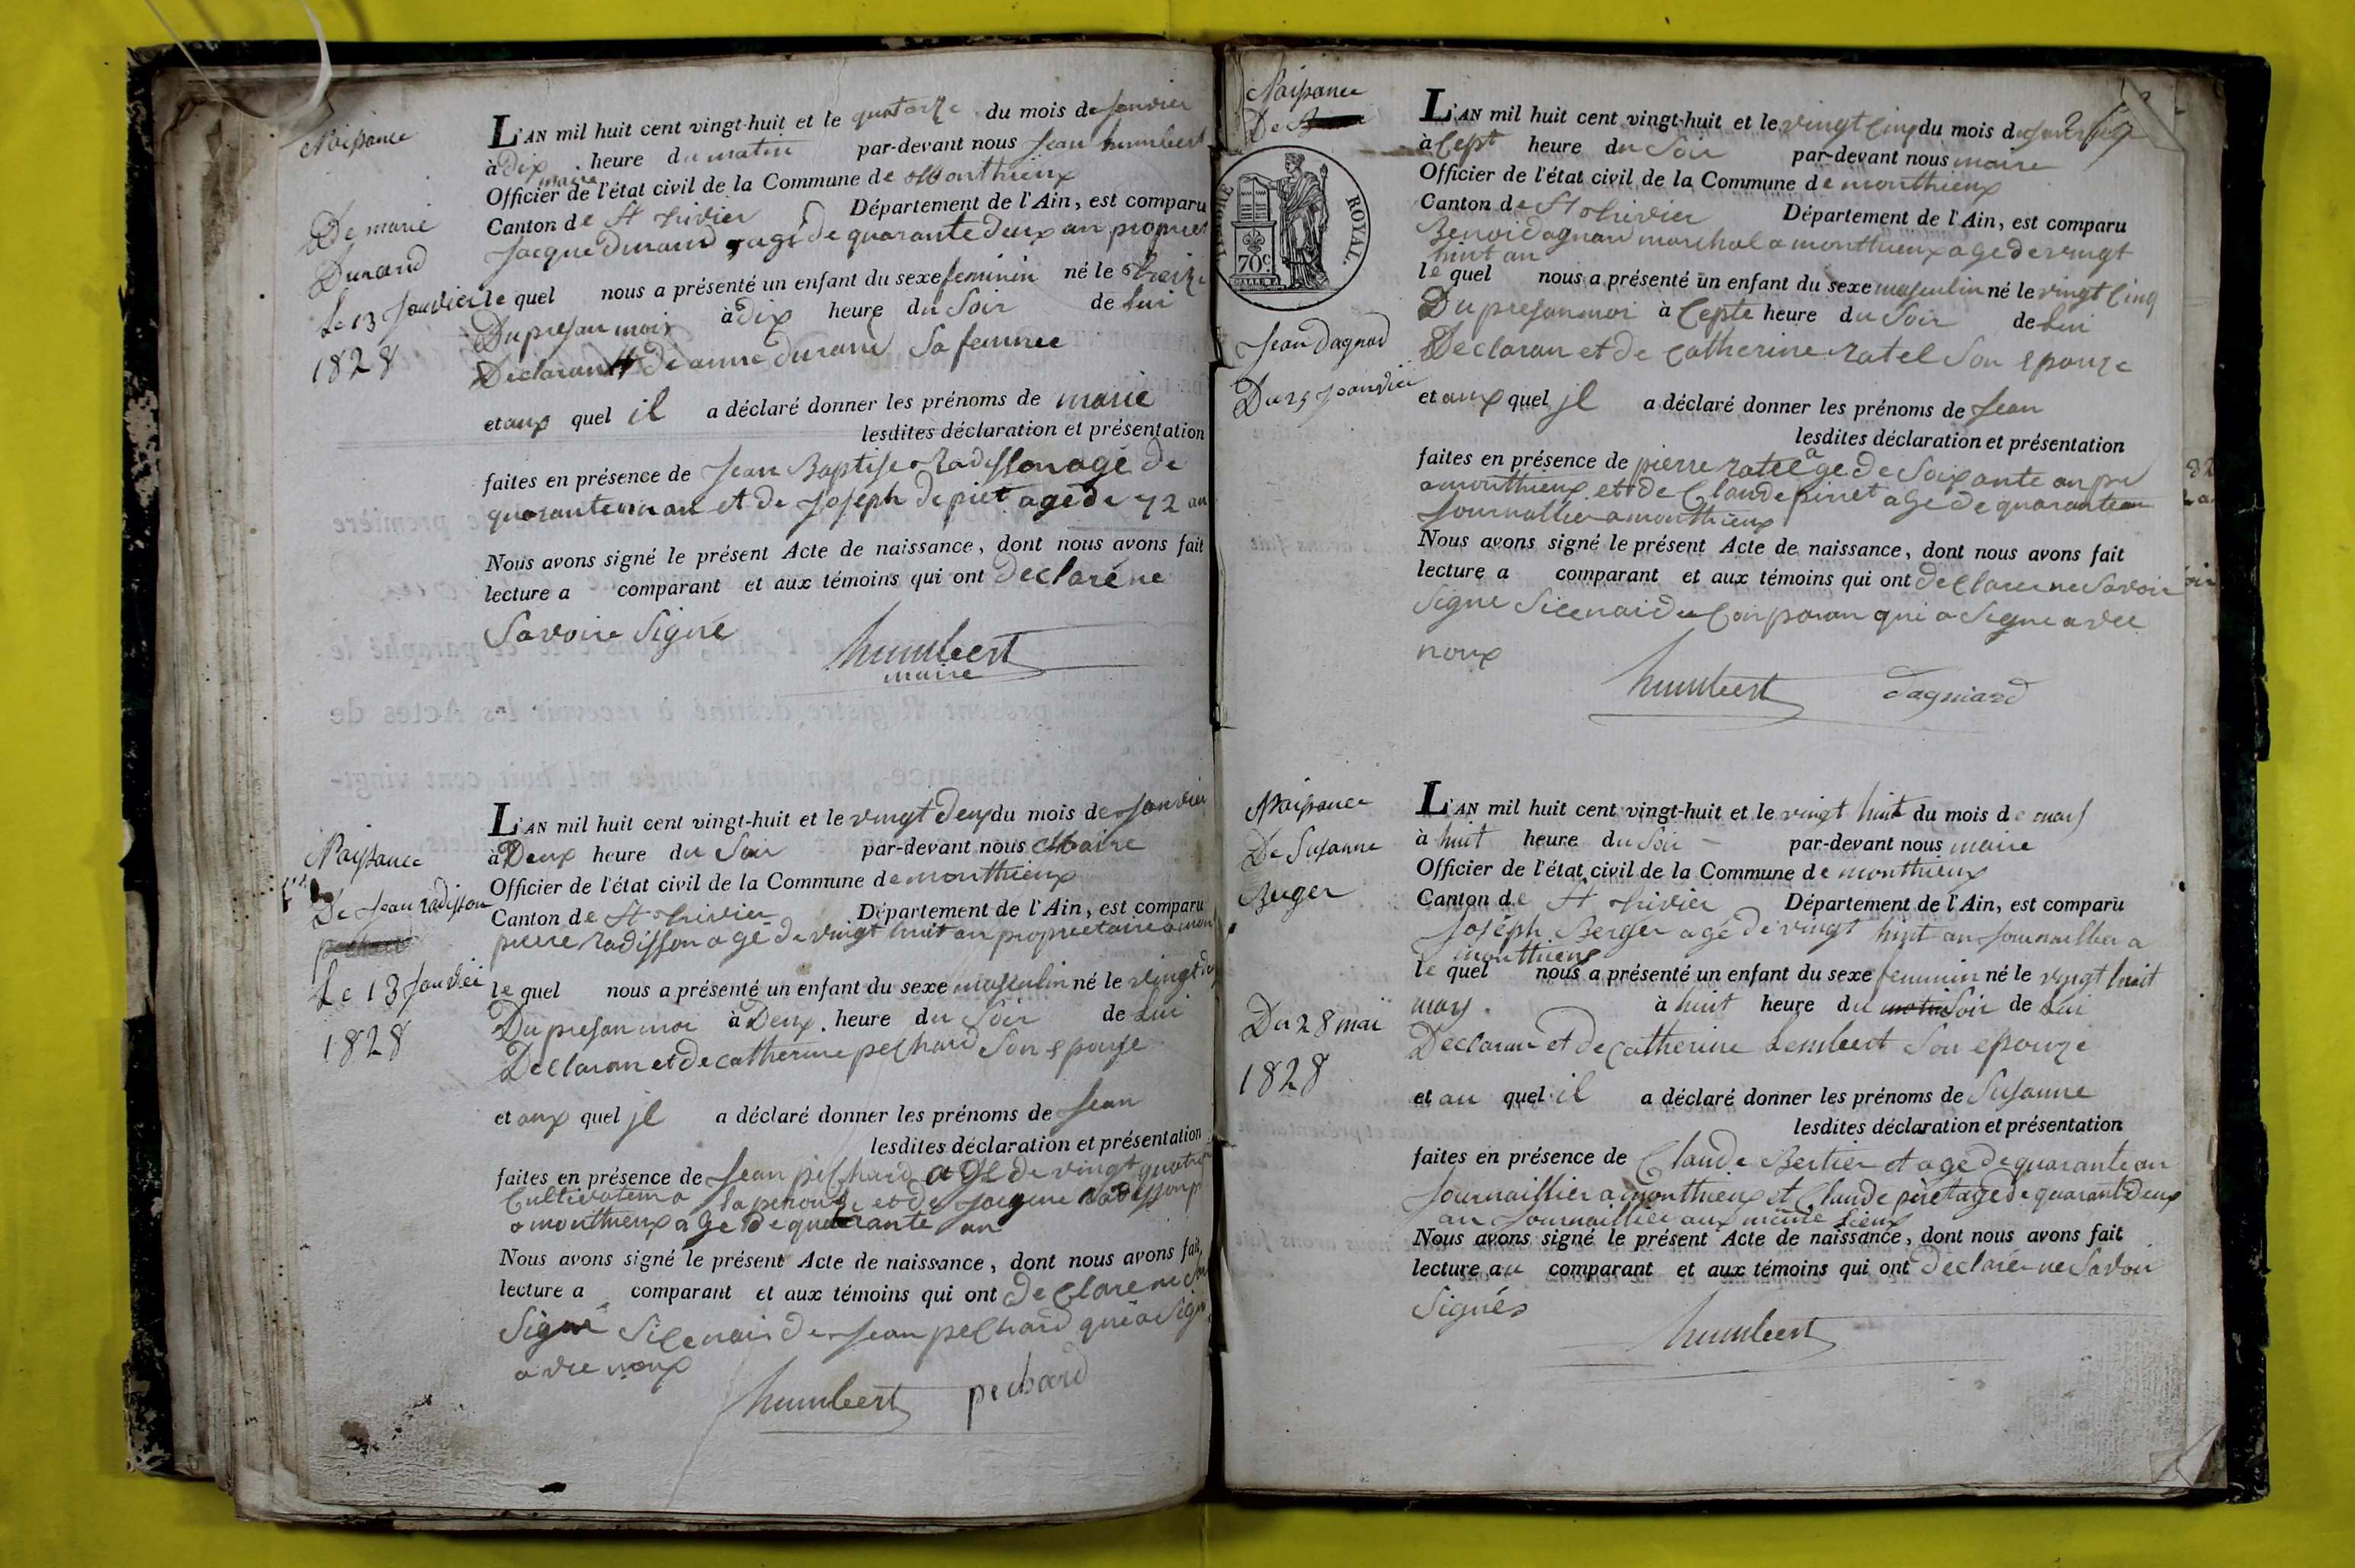 Naissance
De marie
Durand
Le 13 Janvier
1828
L'AN mil huit cent vingt-huit et le quatorze du mois de Janvier
à Dix heure du matin par-devant nous Jean humbert
maire
Officier de l'état civil de la Commune de Monthieux
Canton de St trivier Département de l'Ain, est comparu
Jacque Durand agé de quarante deux an propriet
le quel nous a présenté un enfant du sexe feminin né le treize
Du presan mois à Dix heure du Soir de Lui
Declarant de anne durand Sa femme
et aux quel il a déclaré donner les prénoms de marie
lesdites déclaration et présentation
faites en présence de Jean Baptise Radisson agé de
quarante un an et de Joseph depiet age de 42 an
Nous avons signé le présent Acte de naissance, dont nous avons fait
lecture a comparant et aux témoins qui ont declaré ne
Savoire Signé
humbert
maire
Naissance
De Jean radisson
Le 13 Janvier
1828
L'AN mil huit cent vingt-huit et le vingt Deux du mois de Janvier
à Deux heure du Soir par-devant nous Maire
Officier de l'état civil de la Commune de monthieux
Canton de St trivier Département de l'Ain, est comparu
pierre radisson age de vingt huit an proprietaire a mon
le quel nous a présenté un enfant du sexe masculin né le vingt de
Du presan moi à Deux heure du Soir de Lui
Declaran et de catherine pechard Son epouse
et aux quel jl a déclaré donner les prénoms de Jean
lesdites déclaration et présentation
faites en présence de Jean pechard age de vingt quatre
Cultivateur a lapeyrouze et de Jacque Radisson p
a monthieux age de quarante an
Nous avons signé le présent Acte de naissance, dont nous avons fait
lecture a comparant et aux témoins qui ont declare ne
Signé Sicenai de Jean pechard qui a Sign
avec noux
humbert pechard
Naissance
De
ROYAL.
70c
Jean Dagnad
Du 25 Janvier
L'AN mil huit cent vingt-huit et le vingt Cinq du mois de
à Cept heure du Soir par-devant nous maire
Officier de l'état civil de la Commune de monthieux
Canton de St trivier Département de l'Ain, est comparu
Benoi dagnau marchal a monthieux age de vingt
huit an
le quel nous a présenté un enfant du sexe masculin né le vingt Cinq
Du presan moi à Cepte heure du Soir de Lui
Declaran et de catherine ratel Son epouze
et aux quel jl a déclaré donner les prénoms de Jean
lesdites déclaration et présentation
faites en présence de pierre ratel age de Soixante an
a monthieux et de Claude piret age de quarante an
Journallier a monthieux
Nous avons signé le présent Acte de naissance, dont nous avons fait
lecture a comparant et aux témoins qui ont declaree ne Savoir
Signe Sicenai du Comparan qui a Signe avec
noux
humbert dagniard
Naissance
De Susanne
Berger
Du 28 mai
1828
L'AN mil huit cent vingt-huit et le vingt huit du mois de mars
à huit heure du Soir par-devant nous maire
Officier de l'état civil de la Commune de monthieux
Canton de St trivier Département de l'Ain, est comparu
Joseph Berger agé de vingt huit an Journaillier a
monthieux
le quel nous a présenté un enfant du sexe feminin né le vingt huit
mars à huit heure du matin Soir de Lui
Declaran et de catherine Lembert Son epouze
et au quel il a déclaré donner les prénoms de Susanne
lesdites déclaration et présentation
faites en présence de Claude Bertier et age de quarante an
Journaillier a monthieux et Claude piret age de quarant Deux
an Journaillier aux même Lieux
Nous avons signé le présent Acte de naissance, dont nous avons fait
lecture au comparant et aux témoins qui ont declaré ne Savoir
Signés
humbert